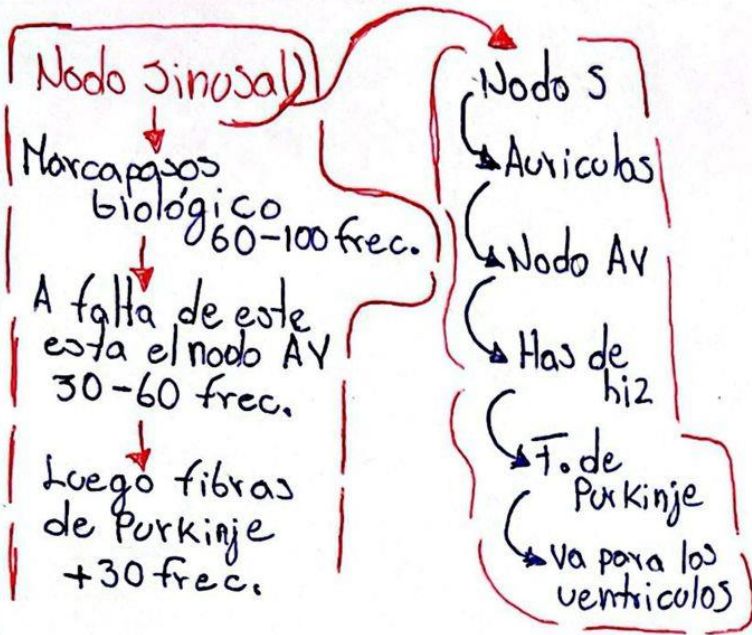 Nodo Sinusal
Marcapasos
biológico
60-100 frec.
A falta de este
esta el nodo AV
30-60 frec.
Luego fibras
de Purkinje
+30 frec.
Nodo S
Auriculas
Nodo AV
Has de
hiz
F. de
Purkinje
Va para los
ventriculos